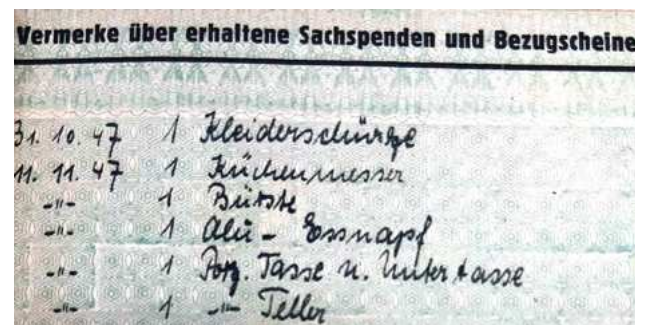 Vermerke über erhaltene Sachspenden und Bezugscheine
31. 10. 47 1 Kleiderschürze
11. 11. 47 1 Küchenmesser
-"- 1 Bürste
-"- 1 Alu - Essnapf
-"- 1 Porz. Tasse u. Untertasse
-"- 1 -"- Teller